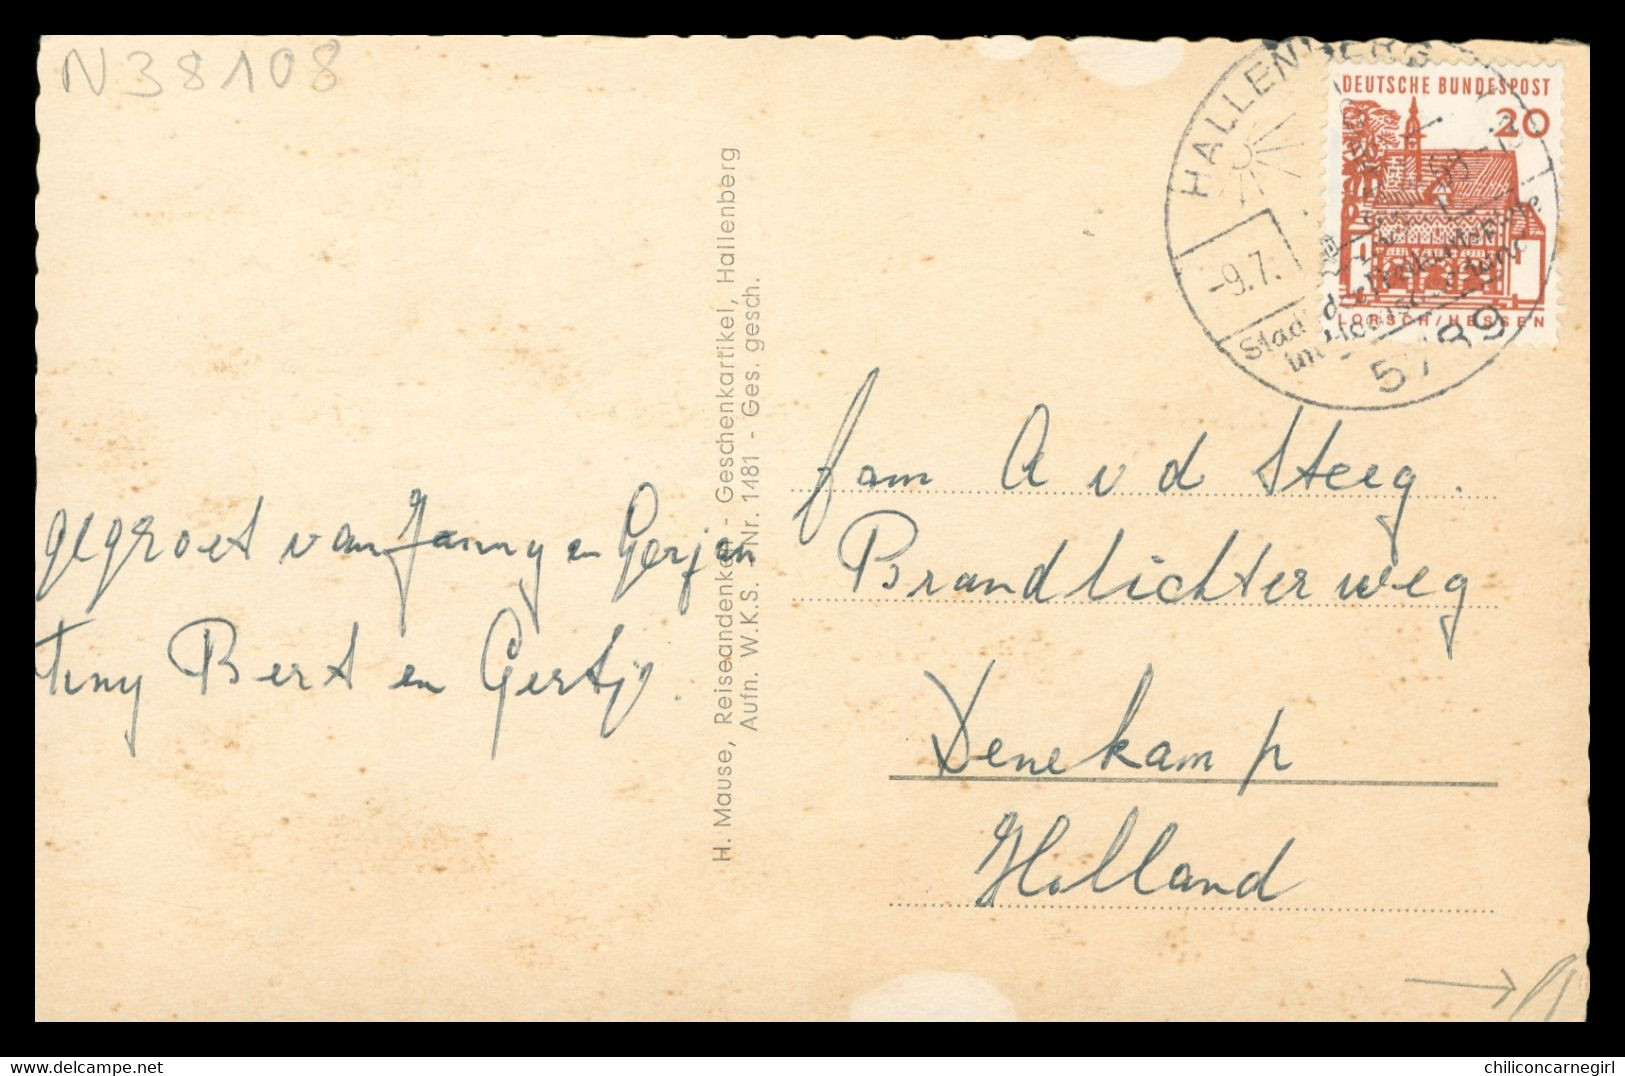 N38108
HALLENBERG
-9.7.
5789
DEUTSCHE BUNDESPOST
20
LORSCH/HESSEN
gegroet van Janny en Gerjan
Tiny Bert en Gertje.
H. Mause, Reiseandenken - Geschenkartikel, Hallenberg
Aufn. W.K.S. - Nr. 1481 - Ges. gesch.
fam A v d Steeg.
Brandlichterweg
Denekamp
Holland
www.delcampe.net
chiliconcarnegirl